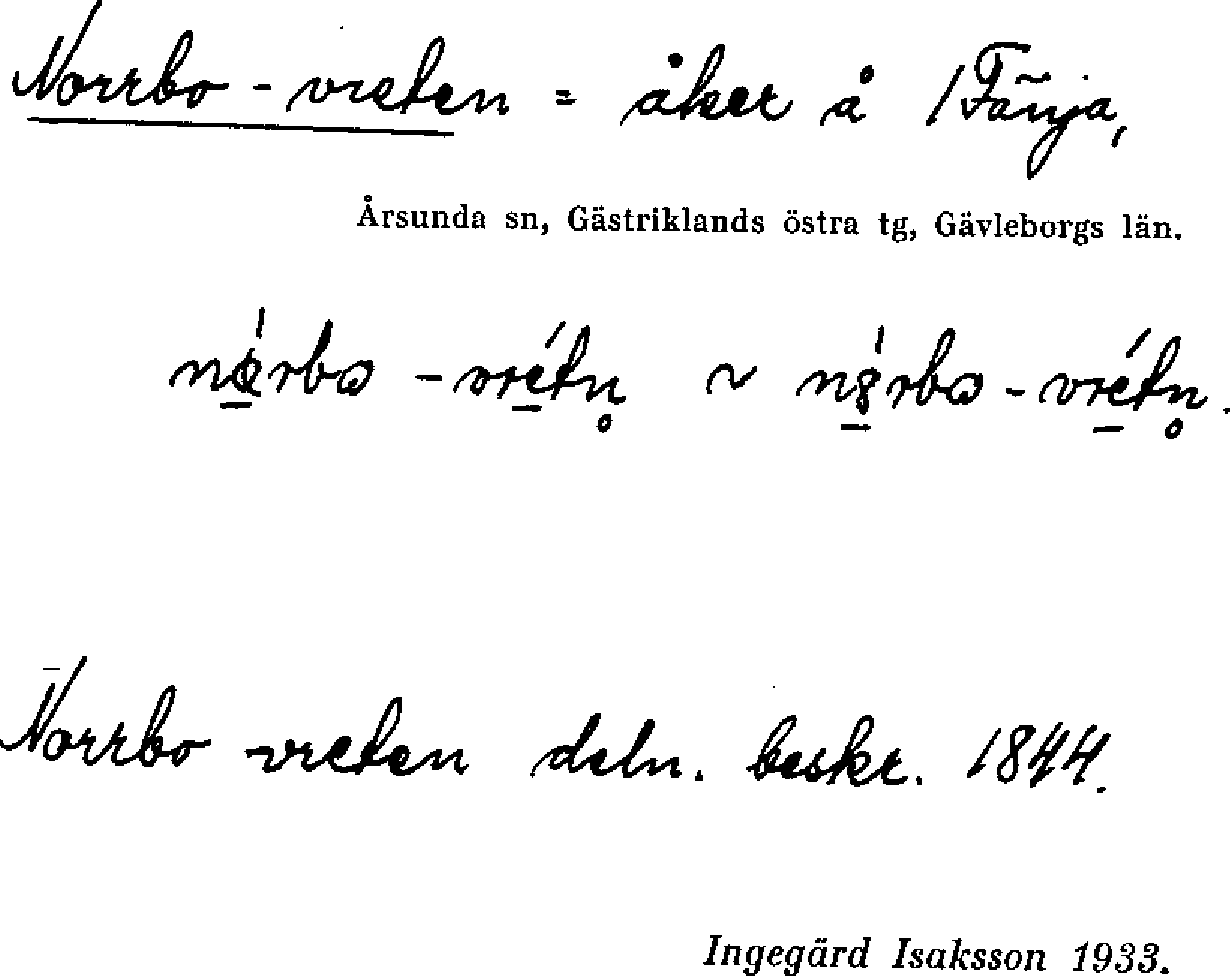 Norrbo-vreten = åker å 1 Fänja,
Årsunda sn, Gästriklands östra tg, Gävleborgs län.
~
Norrbo-vreten deln. beskr. 1844.
Ingegärd Isaksson 1933.